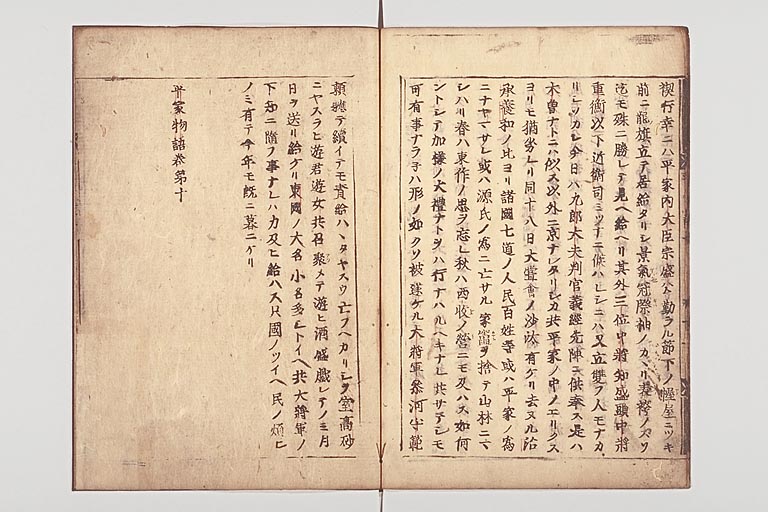 禊行幸ニハ平家内大臣宗盛公勤ラル節下ノ幄屋ニツキ
前ニ龍旗立テ居給タリシ景氣冠際袖ノカヽリ表袴ノスソ
迄モ殊ニ勝レテ見ヘ給ヘリ其外三位中將知盛頭中將
重衡以下近衛司ミツナニ候ハレシニハ又立雙フ人モナカ
リシソカシ今日ハ九郎大夫判官義經先陣ニ供奉ス是ハ
木曽ナトニハ似ス以外ニ京ナレタリシカ共平家ノ中ノエリクス
ヨリモ猶劣レリ同十八日大嘗會ノ沙汰有ケリ去ヌル治
承養和ノ比ヨリ諸國七道ノ人民百姓等或ハ平家ノ為
ニナヤマサレ或ハ源氏ノ為ニ亡サル家竈ヲ捨テ山林ニマ
シハリ春ハ東作ノ思ヲ忘レ秋ハ西收ノ營ニモ及ハス如何
ントシテ加様ノ大禮ナトヲハ行ナハルヘキナレ共サテシモ
可有事ナラ子ハ形ノ如クソ被遂ケル大將軍参河守範
頼聴テ續イテモ責給ハヽタヤスウ亡フヘカリシヲ室高砂
ニヤスラヒ遊君遊女共召聚メテ遊ヒ酒盛戯レテノミ月
日ヲ送リ給ケリ東國ノ大名小名多シトイヘ共大將軍ノ
下知ニ隨フ事ナレハ力及ヒ給ハス只國ノツイヘ民ノ煩ヒ
ノミ有テ今年モ既ニ暮ニケリ
平家物語巻第十